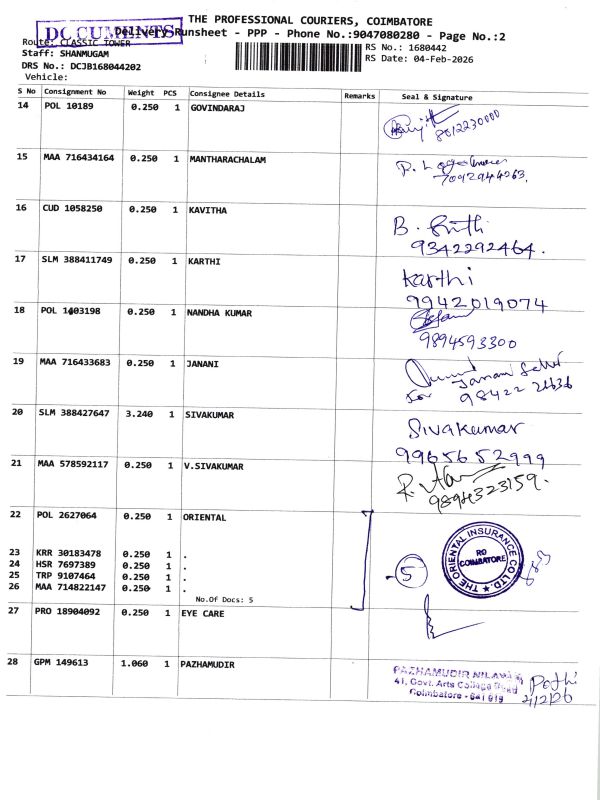 THE PROFESSIONAL COURIERS, COIMBATORE
DOCUMENTS
Delivery Runsheet - PPP - Phone No.:9047080280 - Page No.:2
Route: CLASSIC TOWER
RS No.: 1680442
Staff: SHANMUGAM
RS Date: 04-Feb-2026
DRS No.: DCJB168044202
Vehicle:
S No Consignment No Weight PCS Consignee Details Remarks Seal & Signature
14 POL 10189 0.250 1 GOVINDARAJ
8012230000
15 MAA 716434164 0.250 1 MANTHARACHALAM
7092944263.
16 CUD 1058250 0.250 1 KAVITHA
B.
9342292464.
17 SLM 388411749 0.250 1 KARTHI
Karthi
9942019074
18 POL 1403198 0.250 1 NANDHA KUMAR
9894593300
19 MAA 716433683 0.250 1 JANANI
for Janani
98422
20 SLM 388427647 3.240 1 SIVAKUMAR
Sivakumar
9965652999
21 MAA 578592117 0.250 1 V.SIVAKUMAR
9894323159.
22 POL 2627064 0.250 1 ORIENTAL
23 KRR 30183478 0.250 1 .
24 HSR 7697389 0.250 1 .
25 TRP 9107464 0.250 1 .
26 MAA 714822147 0.250 1 .
No.Of Docs: 5
5
THE ORIENTAL INSURANCE CO LTD.
RO
COIMBATORE
27 PRO 18904092 0.250 1 EYE CARE
28 GPM 149613 1.060 1 PAZHAMUDIR
PAZHAMUDIR NILAYAM
41, Govt. Arts College Road
Coimbatore - 641 018